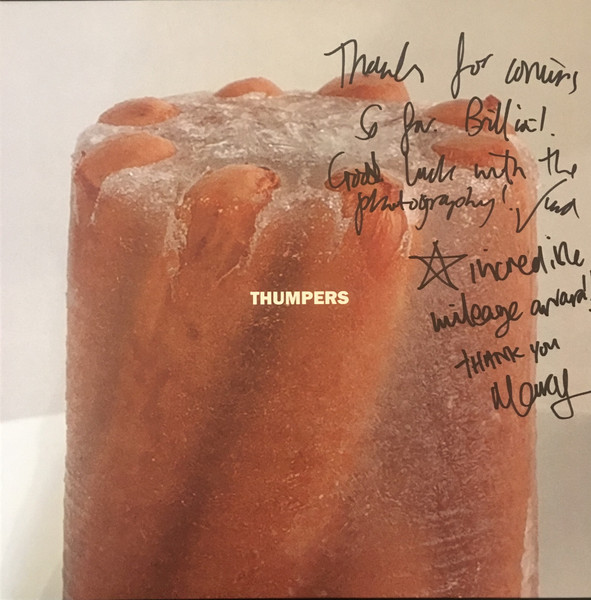 Thanks for coming
So far. Brilliant!
Good luck with the
photography!
☆ incredible
mileage award!
THANK YOU
THUMPERS